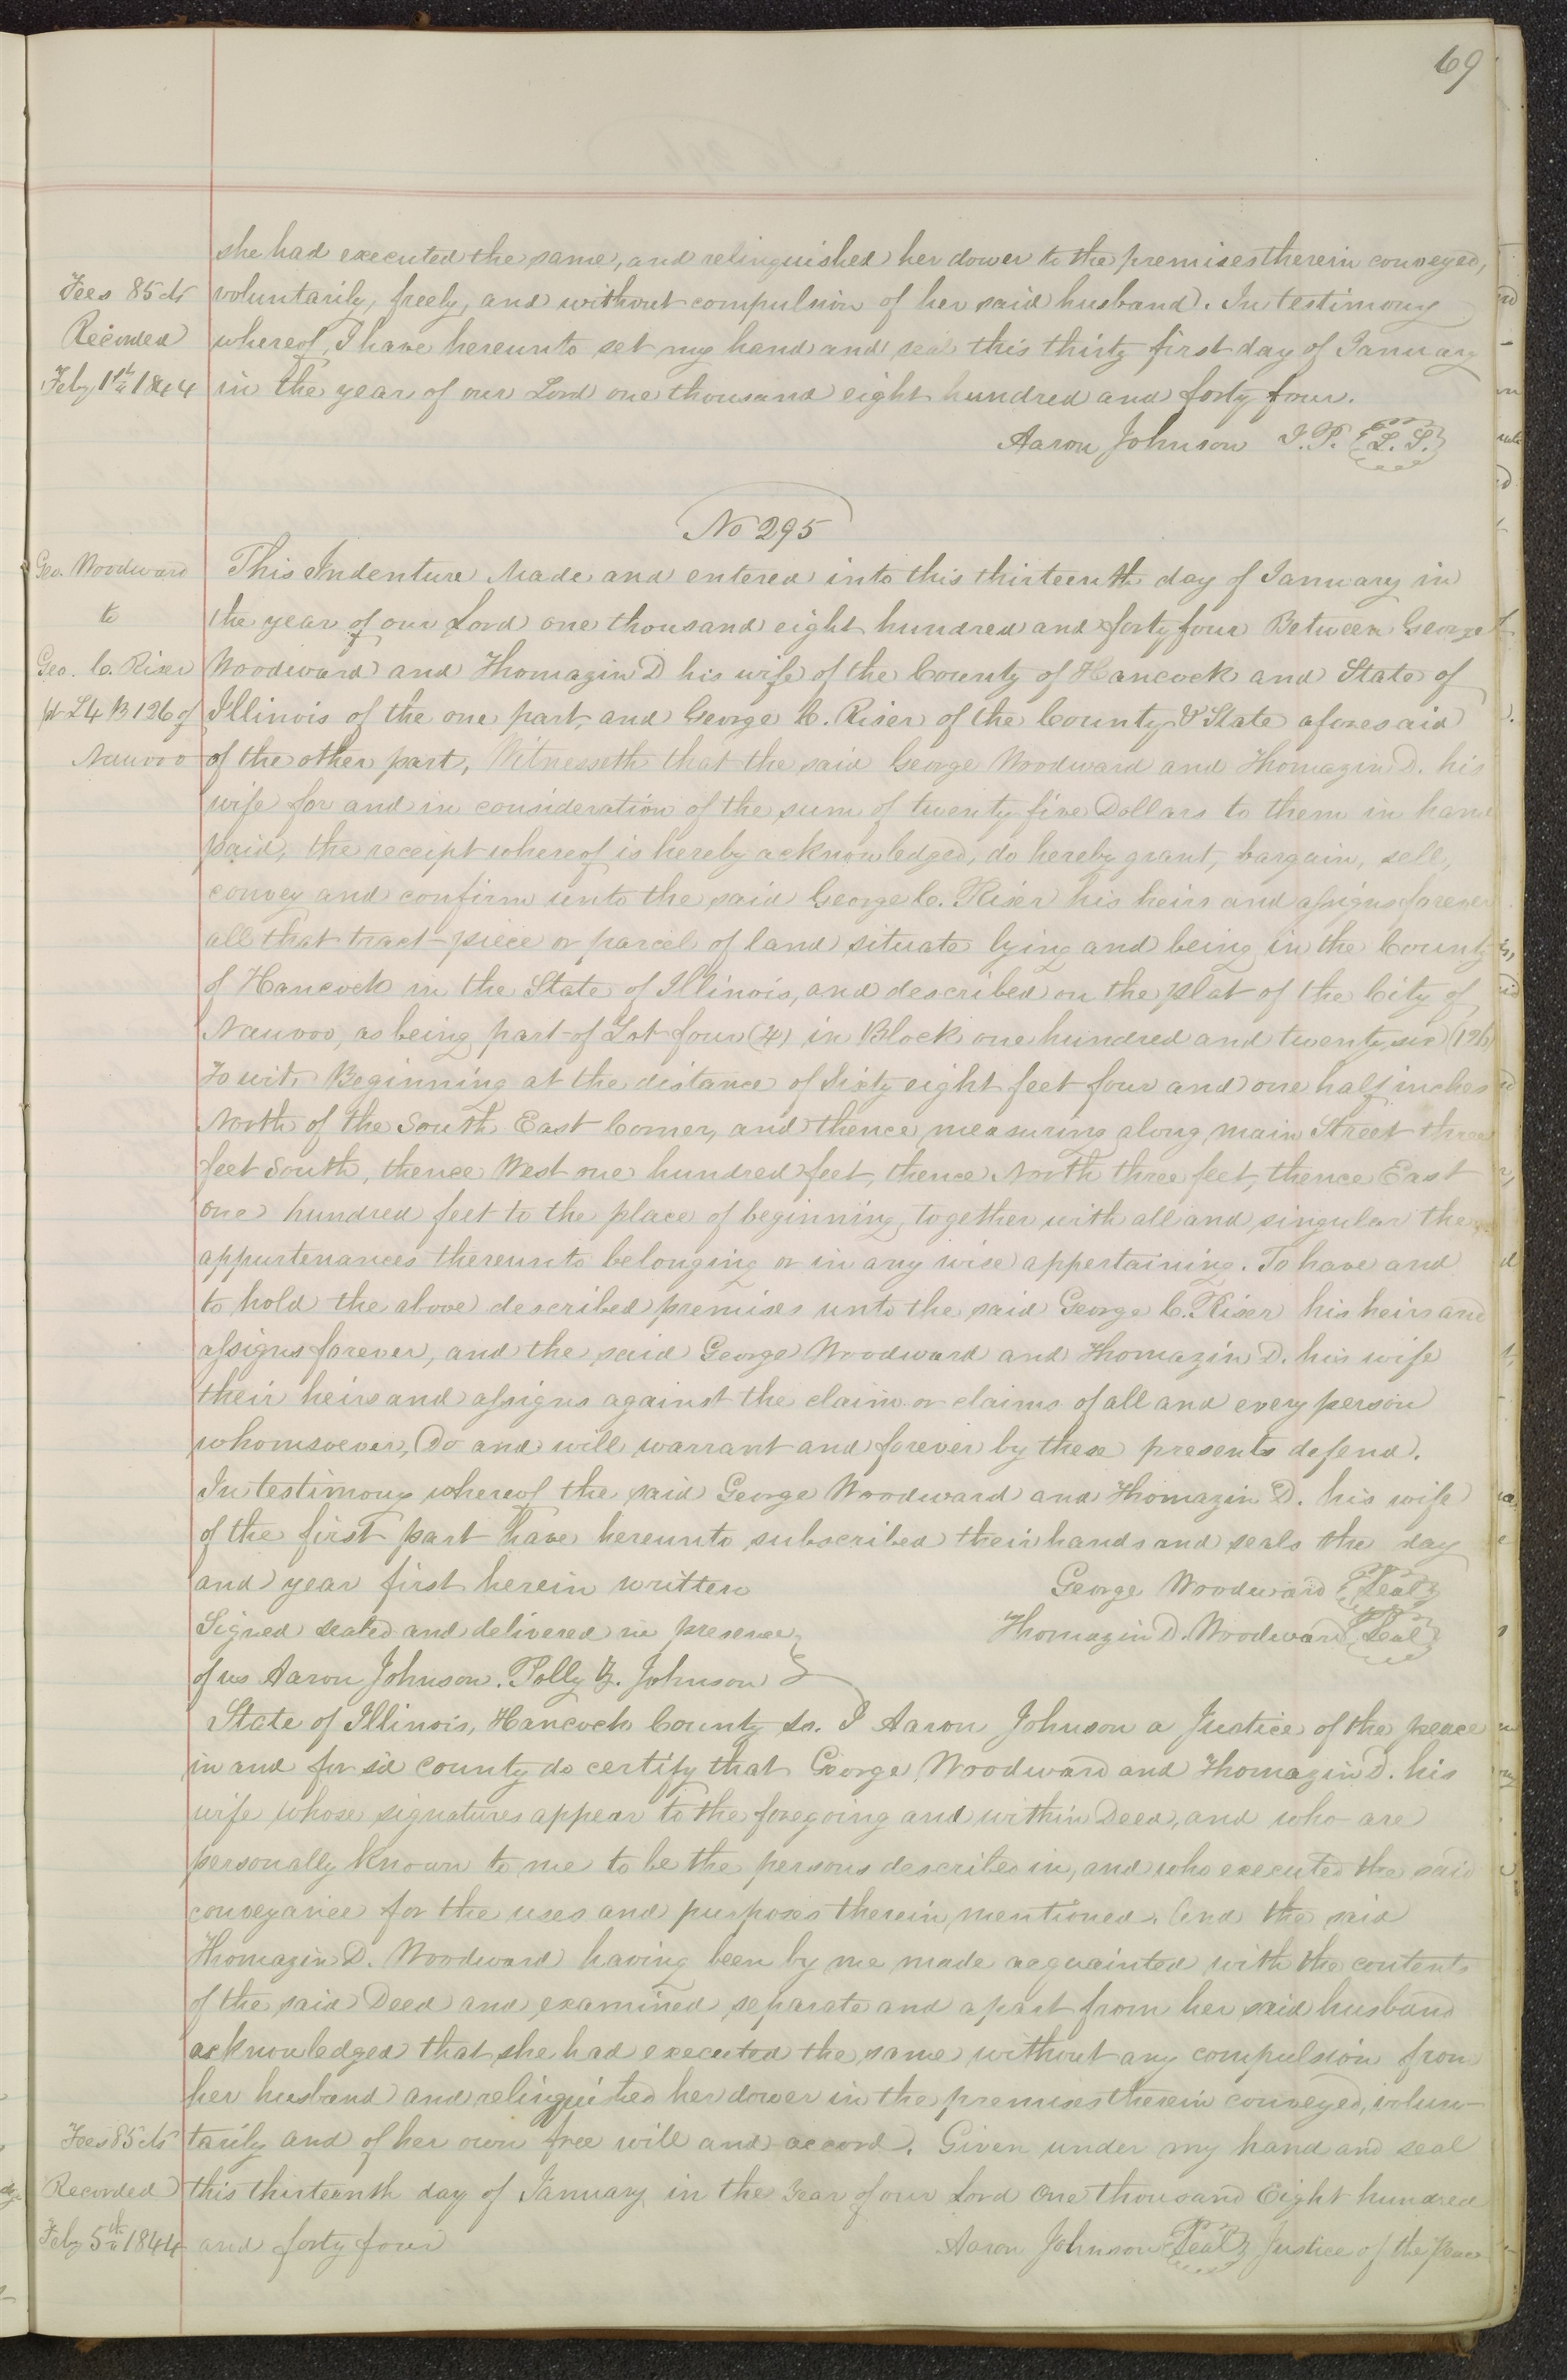 69
she had executed the same, and relinquished her dower to the premises therein conveyed,
Fees 85 cts voluntarily, freely, and without compulsion of her said husband. In testimony
Recorded whereof, I have hereunto set my hand and seal this thirty first day of January
Feby 1st 1844 in the year of our Lord one thousand eight hundred and forty four.
Aaron Johnson J.P. L.S.
No 295
Geo. Woodward This Indenture Made and entered into this thirteenth day of January in
to the year of our Lord one thousand eight hundred and forty four Between George
Geo. C. Riser Woodward and Thomazin D his wife of the County of Hancock and State of
pt L4 B 126 of Illinois of the one part, and George C. Riser of the County & State aforesaid
Nauvoo of the other part, Witnesseth that the said George Woodward and Thomazin D. his
wife for and in consideration of the sum of twenty five Dollars to them in hand
paid, the receipt whereof is hereby acknowledged, do hereby grant, bargain, sell,
convey and confirm unto the said George C. Riser his heirs and assigns forever
all that tract piece or parcel of land situate lying and being in the County
of Hancock in the State of Illinois, and described on the plat of the City of
Nauvoo, as being part of Lot four (4) in Block one hundred and twenty six (126)
To wit, Beginning at the distance of Sixty eight feet four and one half inches
North of the South East Corner, and thence measuring along main Street three
feet South, thence West one hundred feet, thence North three feet, thence East
one hundred feet to the place of beginning, together with all and singular the
appurtenances thereunto belonging or in any wise appertaining. To have and
to hold the above described premises unto the said George C. Riser his heirs and
assigns forever, and the said George Woodward and Thomazin D. his wife
their heirs and assigns against the claim or claims of all and every person
whomsoever, Do and will warrant and forever by these presents defend.
In testimony whereof the said George Woodward and Thomazin D. his wife
of the first part have hereunto subscribed their hands and seals the day
and year first herein written George Woodward Seal
Signed sealed and delivered in presence Thomazin D. Woodward Seal
of us Aaron Johnson. Polly Z. Johnson
State of Illinois, Hancock County ss. I Aaron Johnson a Justice of the peace
in and for sd county do certify that George Woodward and Thomazin D. his
wife whose signatures appear to the foregoing and within Deed, and who are
personally known to me to be the persons described in, and who executed the said
conveyance for the uses and purposes therein mentioned. And the said
Thomazin D. Woodward having been by me made acquainted with the contents
of the said Deed and examined separate and apart from her said husband
acknowledged that she had executed the same without any compulsion from
her husband and relinquished her dower in the premises therein conveyed, volun-
Fees 85 cts tarily and of her own free will and accord. Given under my hand and seal
Recorded this thirteenth day of January in the Year of our Lord One thousand Eight hundred
Feby 5th 1844 and forty four Aaron Johnson Seal Justice of the Peace